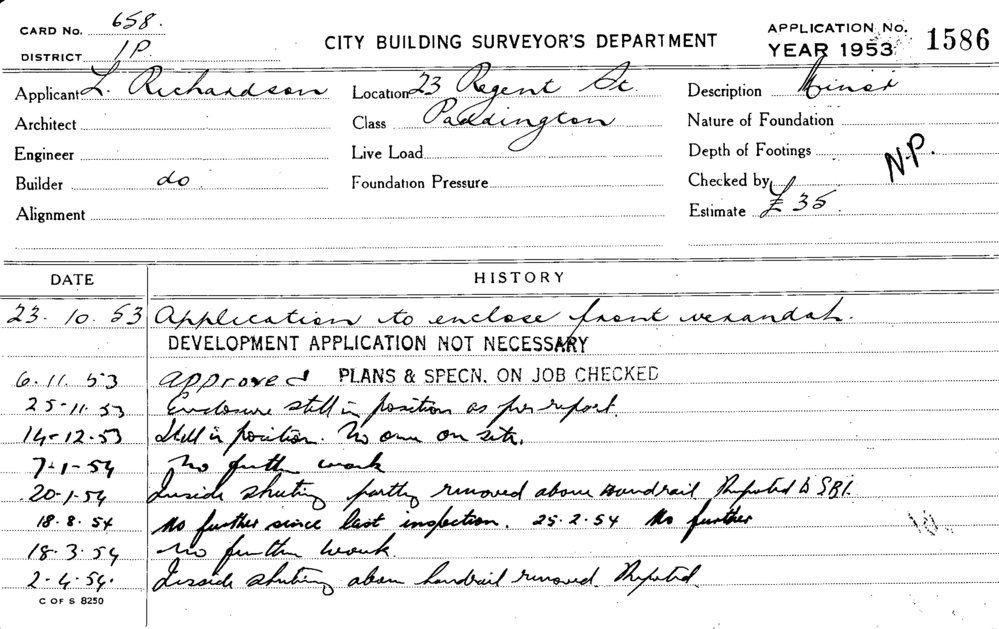 CARD No. 658.
DISTRICT 1P.
CITY BUILDING SURVEYOR'S DEPARTMENT
APPLICATION No.
YEAR 1953 1586
Applicant L. Richardson Location 23 Regent St. Description Minor
Architect Class Paddington Nature of Foundation
Engineer Live Load Depth of Footings N.P.
Builder do Foundation Pressure Checked by
Alignment Estimate £35.
DATE HISTORY
23.10.53 Application to enclose front verandah.
DEVELOPMENT APPLICATION NOT NECESSARY
6.11.53 approved PLANS & SPECN. ON JOB CHECKED
25-11-53 Enclosure still in position as per report.
14-12-53 Still in position. No one on site.
7-1-54 No further work
20-1-54 Inside sheeting partly removed above handrail Reported to SBI.
18.8.54 No further since last inspection. 25.2.54 No further
18.3.54 No further work.
2.4.54. Inside sheeting above handrail removed Reported
C OF S 8250